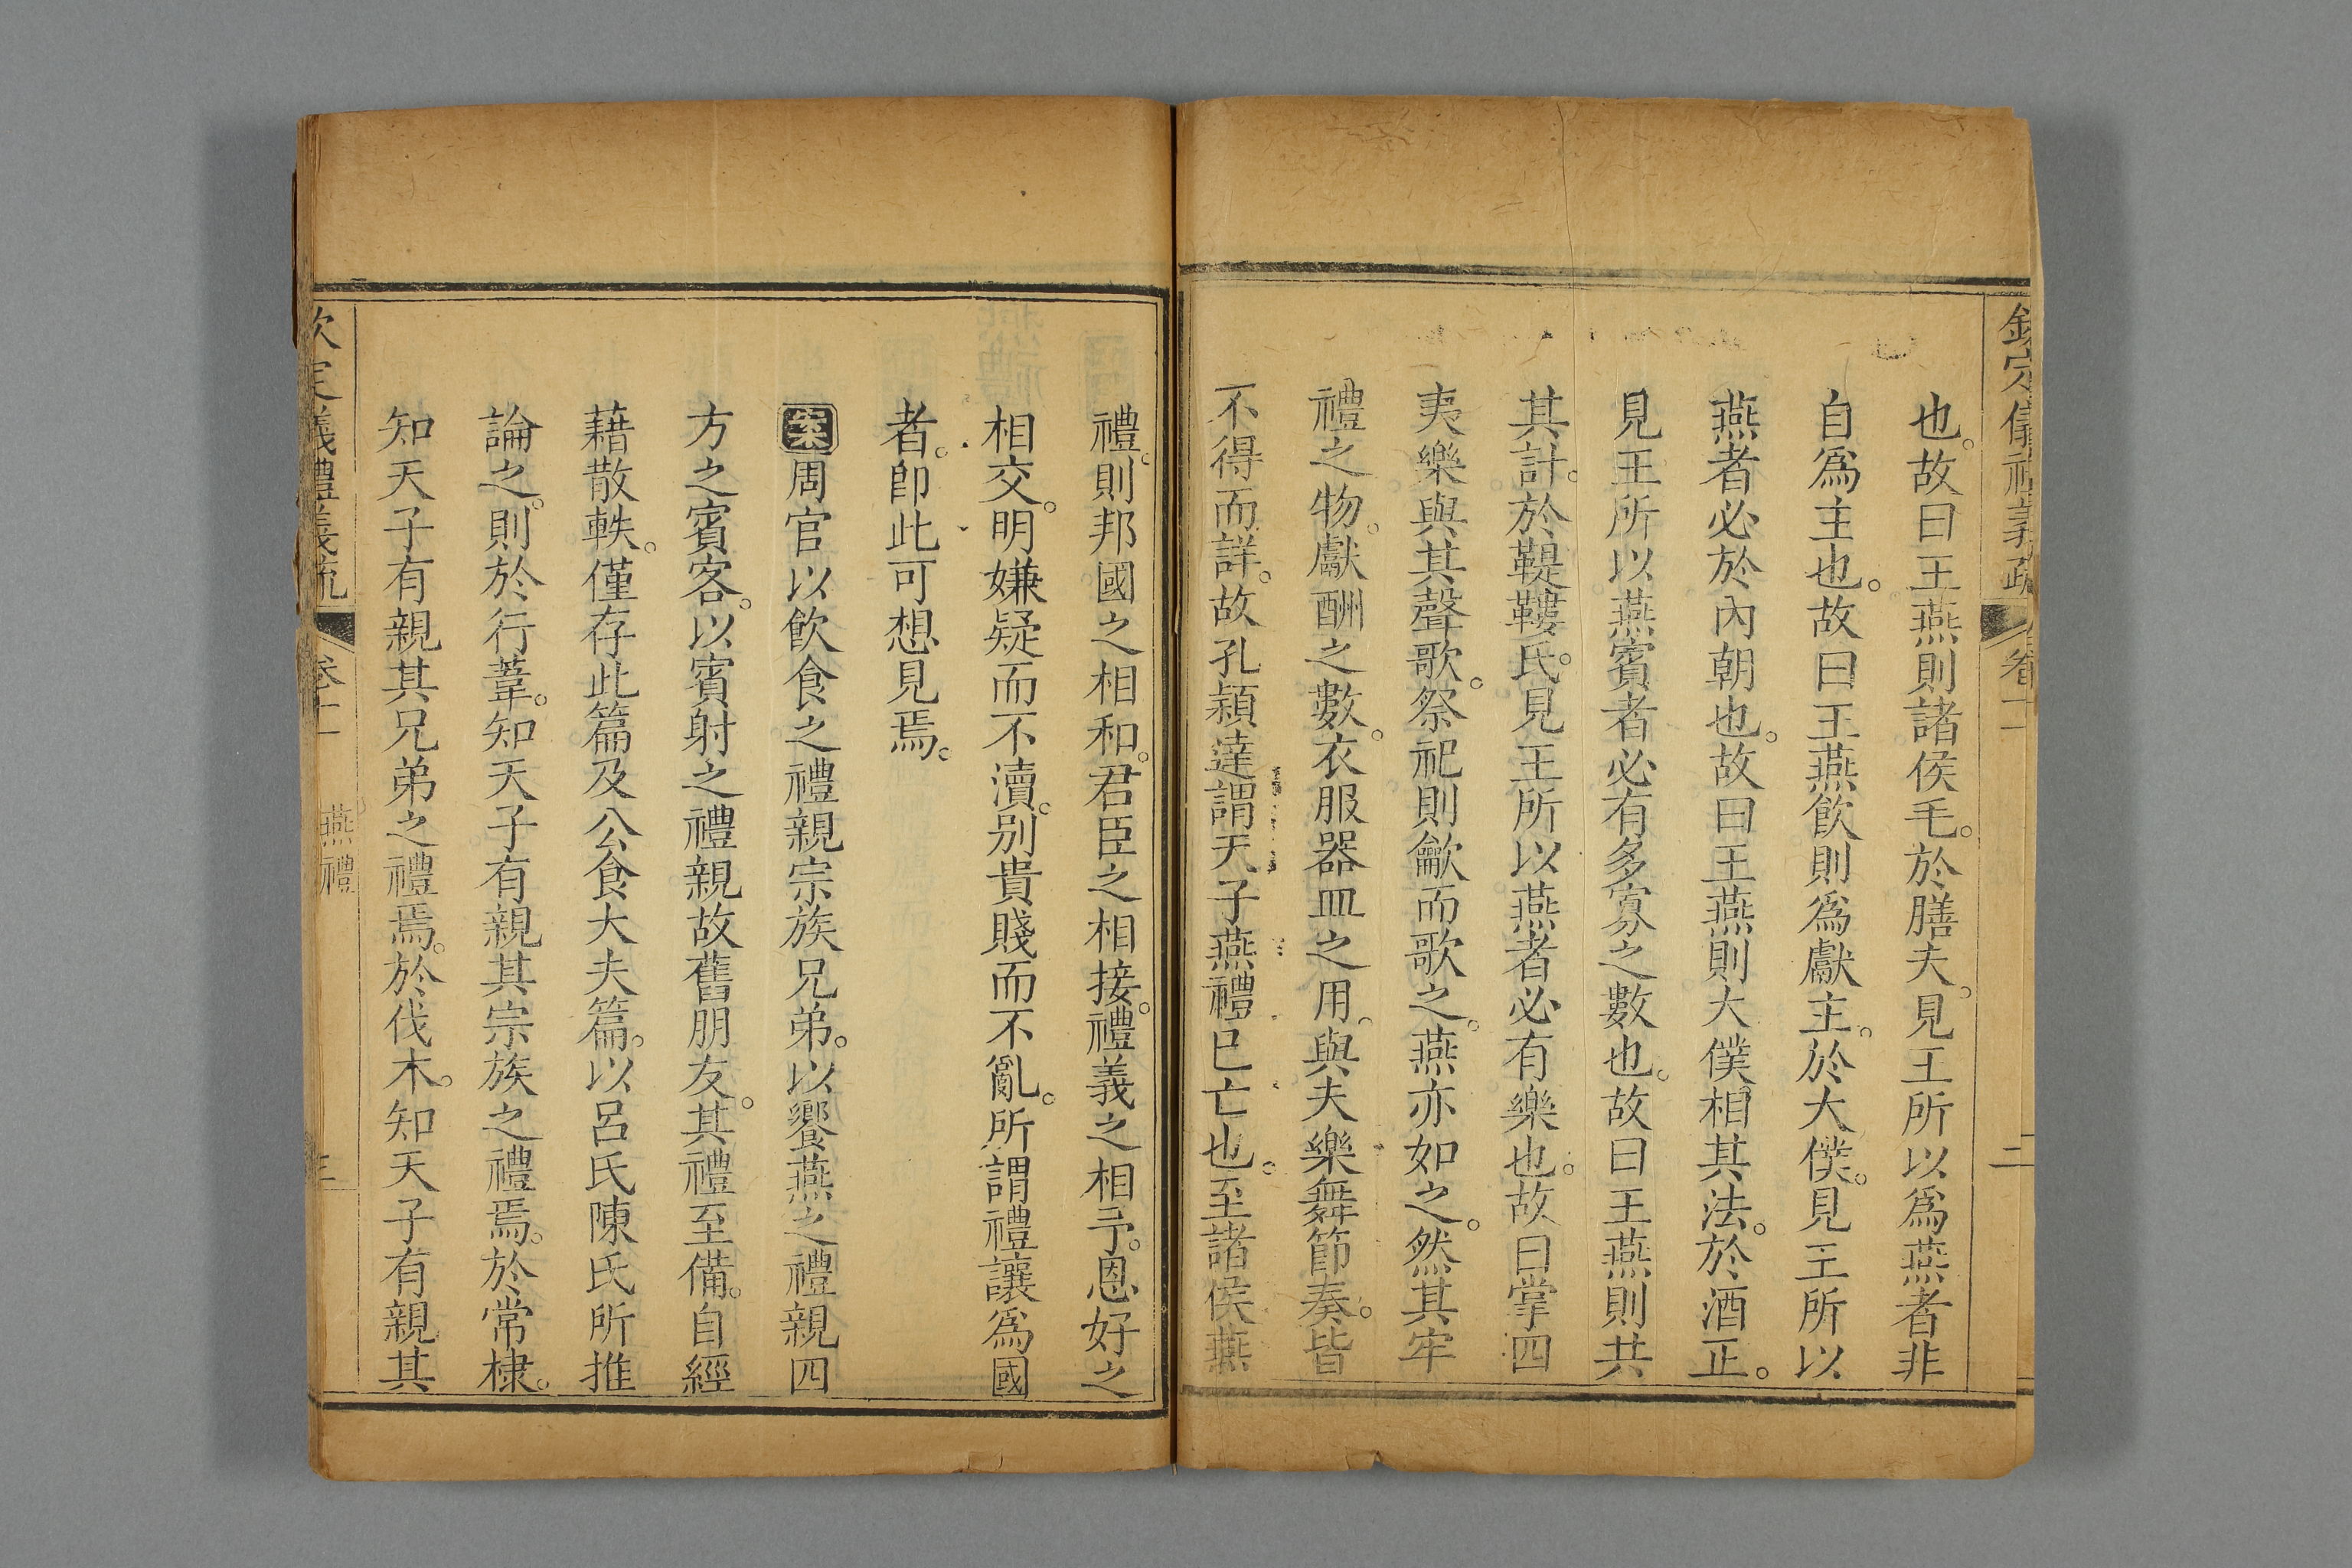 欽定儀禮義疏 卷十一 二
也。故曰王燕則諸侯毛。於膳夫。見王所以為燕者非
自為主也。故曰王燕飲則為獻主。於大僕。見王所以
燕者必於內朝也。故曰王燕則大僕相其法。於酒正。
見王所以燕賓者必有多寡之數也。故曰王燕則共
其計。於鞮鞻氏。見王所以燕者必有樂也。故曰掌四
夷樂與其聲歌。祭祀則龡而歌之。燕亦如之。然其牢
禮之物。獻酬之數。衣服器皿之用。與夫樂舞節奏。皆
不得而詳。故孔穎達謂天子燕禮已亡也。至諸侯燕
禮。則邦國之相和。君臣之相接。禮義之相予。恩好之
相交。明嫌疑而不瀆。別貴賤而不亂。所謂禮讓為國
者。卽此可想見焉。
案周官以飲食之禮親宗族兄弟。以饗燕之禮親四
方之賓客。以賓射之禮親故舊朋友。其禮至備。自經
藉散軼。僅存此篇及公食大夫篇。以呂氏陳氏所推
論之。則於行葦。知天子有親其宗族之禮焉。於常棣。
知天子有親其兄弟之禮焉。於伐木。知天子有親其
欽定儀禮義疏 卷十一 燕禮 三